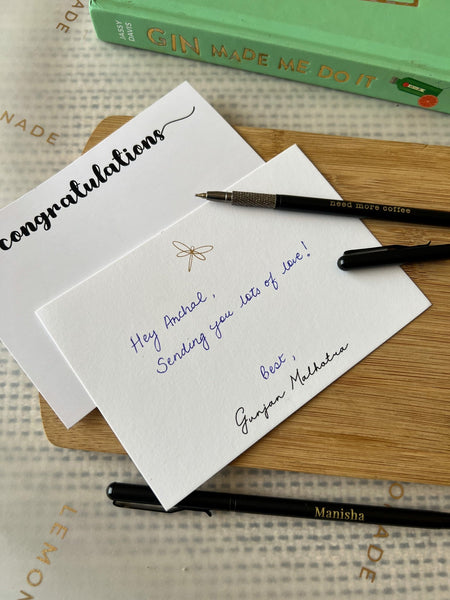 JASSY
DAVIS
GIN MADE ME DO IT
congratulations
need more coffee
Hey Anchal,
Sending you lots of love!
Best,
Gunjan Malhotra
Manisha
NADE
LEMON
ADE